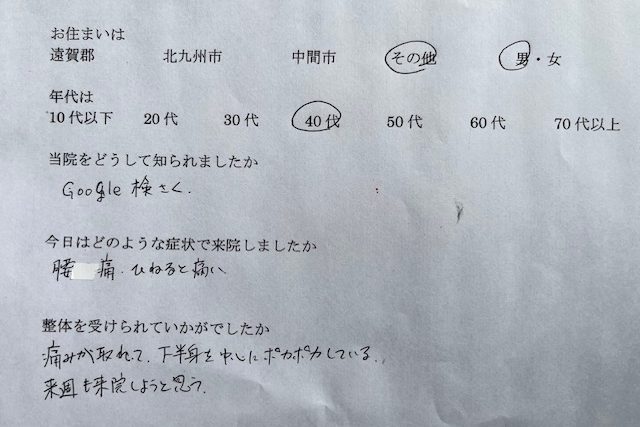 お住まいは
遠賀郡 北九州市 中間市 その他 男・女
年代は
10代以下 20代 30代 40代 50代 60代 70代以上
当院をどうして知られましたか
Google 検さく.
今日はどのような症状で来院しましたか
腰 痛.ひねると痛い
整体を受けられていかがでしたか
痛みが取れて、下半身を中心にポカポカしている.
来週も来院しようと思う.